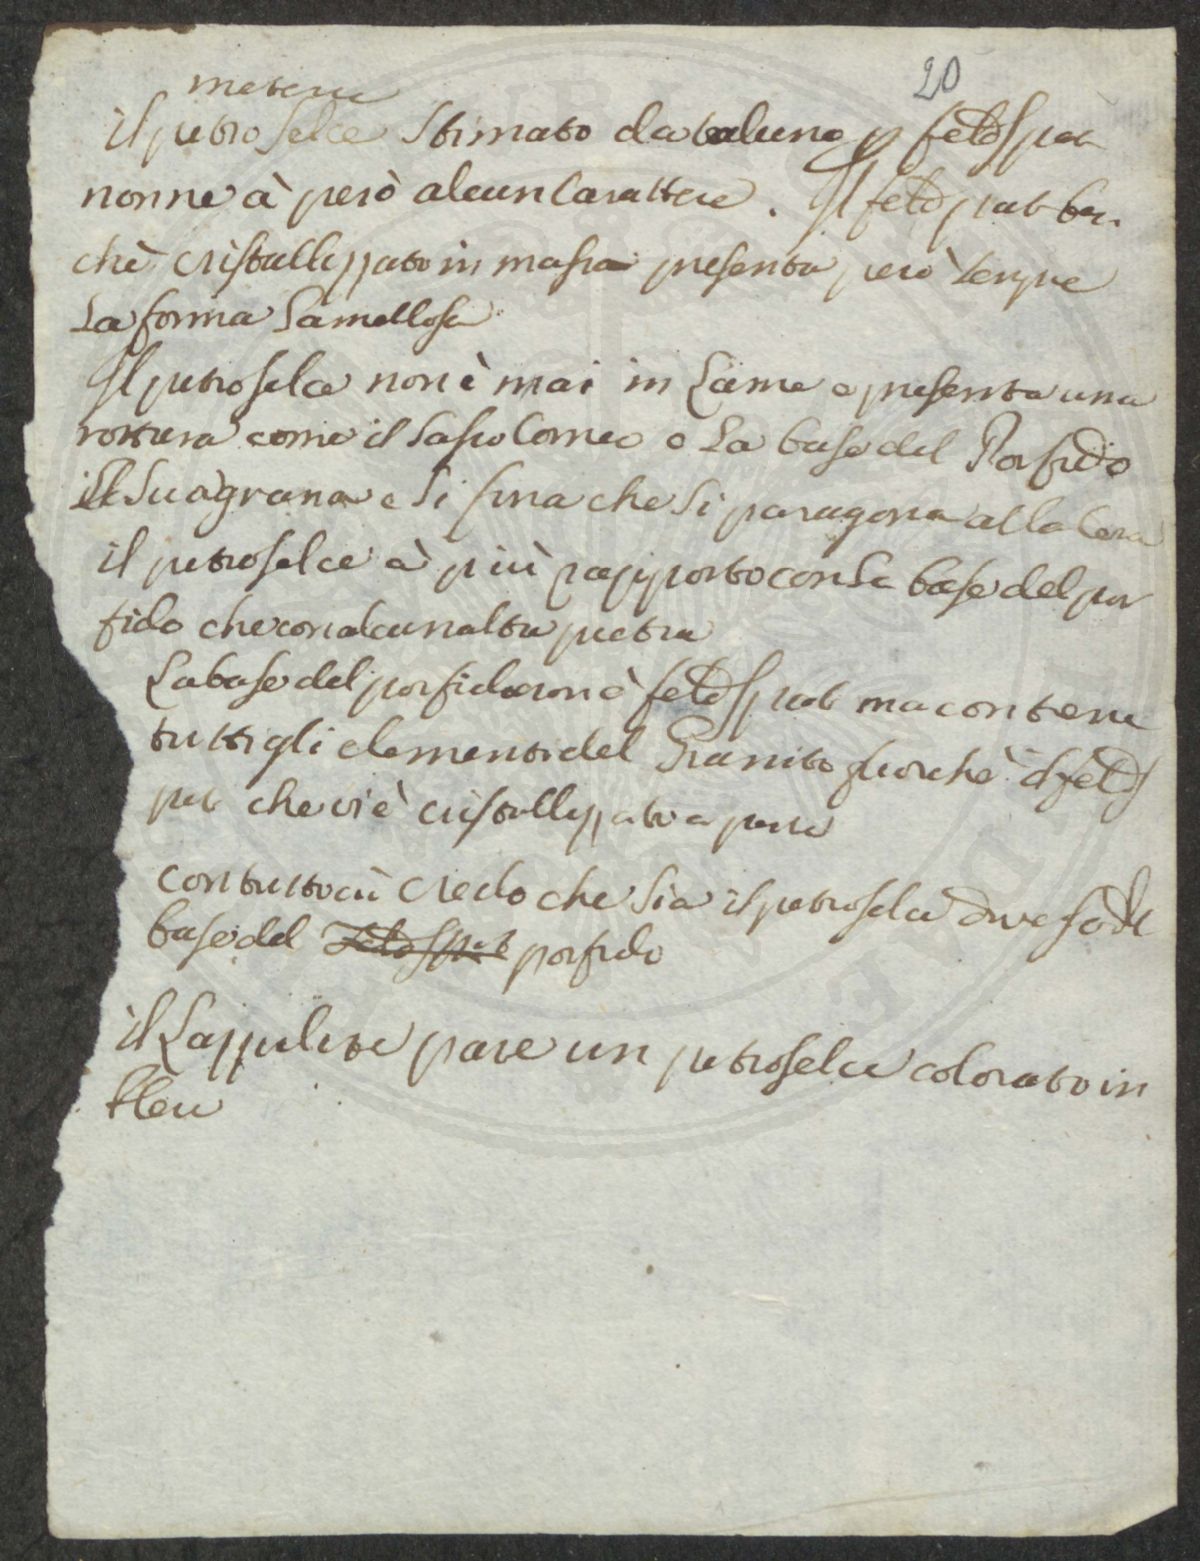 20
il petroselce stimato da taluno p feldspat
non ne à però alcun Carattere. Il feldspat ben
chè cristallizzato in massa presenta però sempre
La forma Lamellosa
Il petroselce non è mai in Lame e presenta una
rottura come il Sasso Corneo o La base del Porfido
La Sua grana e Si fina che Si paragona alla Cera
il petroselce à più rapporto con La base del por
fido che con alcun altra pietra
La base del porfido non è feldspat ma contiene
tutti gli elementi del Granito fuorchè il feld
pat che vi è cristallizzato a parte
con tutto ciò credo che Sia il petroselce
base del Feldspat porfido
il Lappulite pare un petroselce colorato in
bleu